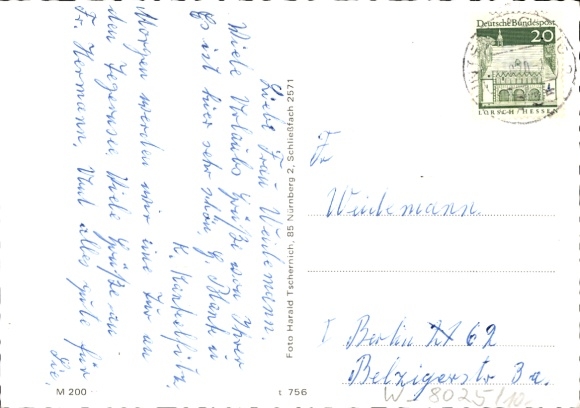 Liebe Frau Weidemann.
Viele Urlaubs Grüße von Ihrer
G. Blank u.
K. Kunkelfitz.
Es ist hier sehr schön.
Morgen werden wir eine Tur an
den Tegernsee. Viele Grüße an
Fr. Hermann. Und alles gute für
Sie.
Foto Harald Tschernich, 85 Nürnberg 2, Schließfach 2571
M 200
t 756
Deutsche Bundespost
20
LORSCH/HESSEN
Fr
Weidemann
1 Berlin 62
Belzigerstr 3a.
W-8025/10